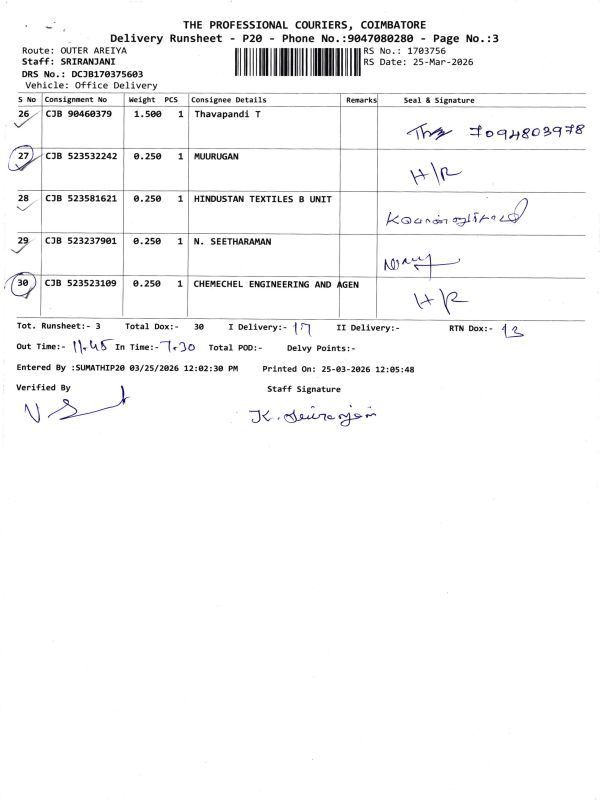 THE PROFESSIONAL COURIERS, COIMBATORE
Delivery Runsheet - P20 - Phone No.:9047080280 - Page No.:3
Route: OUTER AREIYA RS No.: 1703756
Staff: SRIRANJANI RS Date: 25-Mar-2026
DRS No.: DCJB170375603
Vehicle: Office Delivery
S No Consignment No Weight PCS Consignee Details Remarks Seal & Signature
26 CJB 90460379 1.500 1 Thavapandi T 7094803978
27 CJB 523532242 0.250 1 MUURUGAN H/R
28 CJB 523581621 0.250 1 HINDUSTAN TEXTILES B UNIT
29 CJB 523237901 0.250 1 N. SEETHARAMAN
30 CJB 523523109 0.250 1 CHEMECHEL ENGINEERING AND AGEN H/R
Tot. Runsheet:- 3 Total Dox:- 30 I Delivery:- 17 II Delivery:- RTN Dox:- 13
Out Time:- 11.45 In Time:- 7.30 Total POD:- Delvy Points:-
Entered By :SUMATHIP20 03/25/2026 12:02:30 PM Printed On: 25-03-2026 12:05:48
Verified By Staff Signature
K. Sriranjani